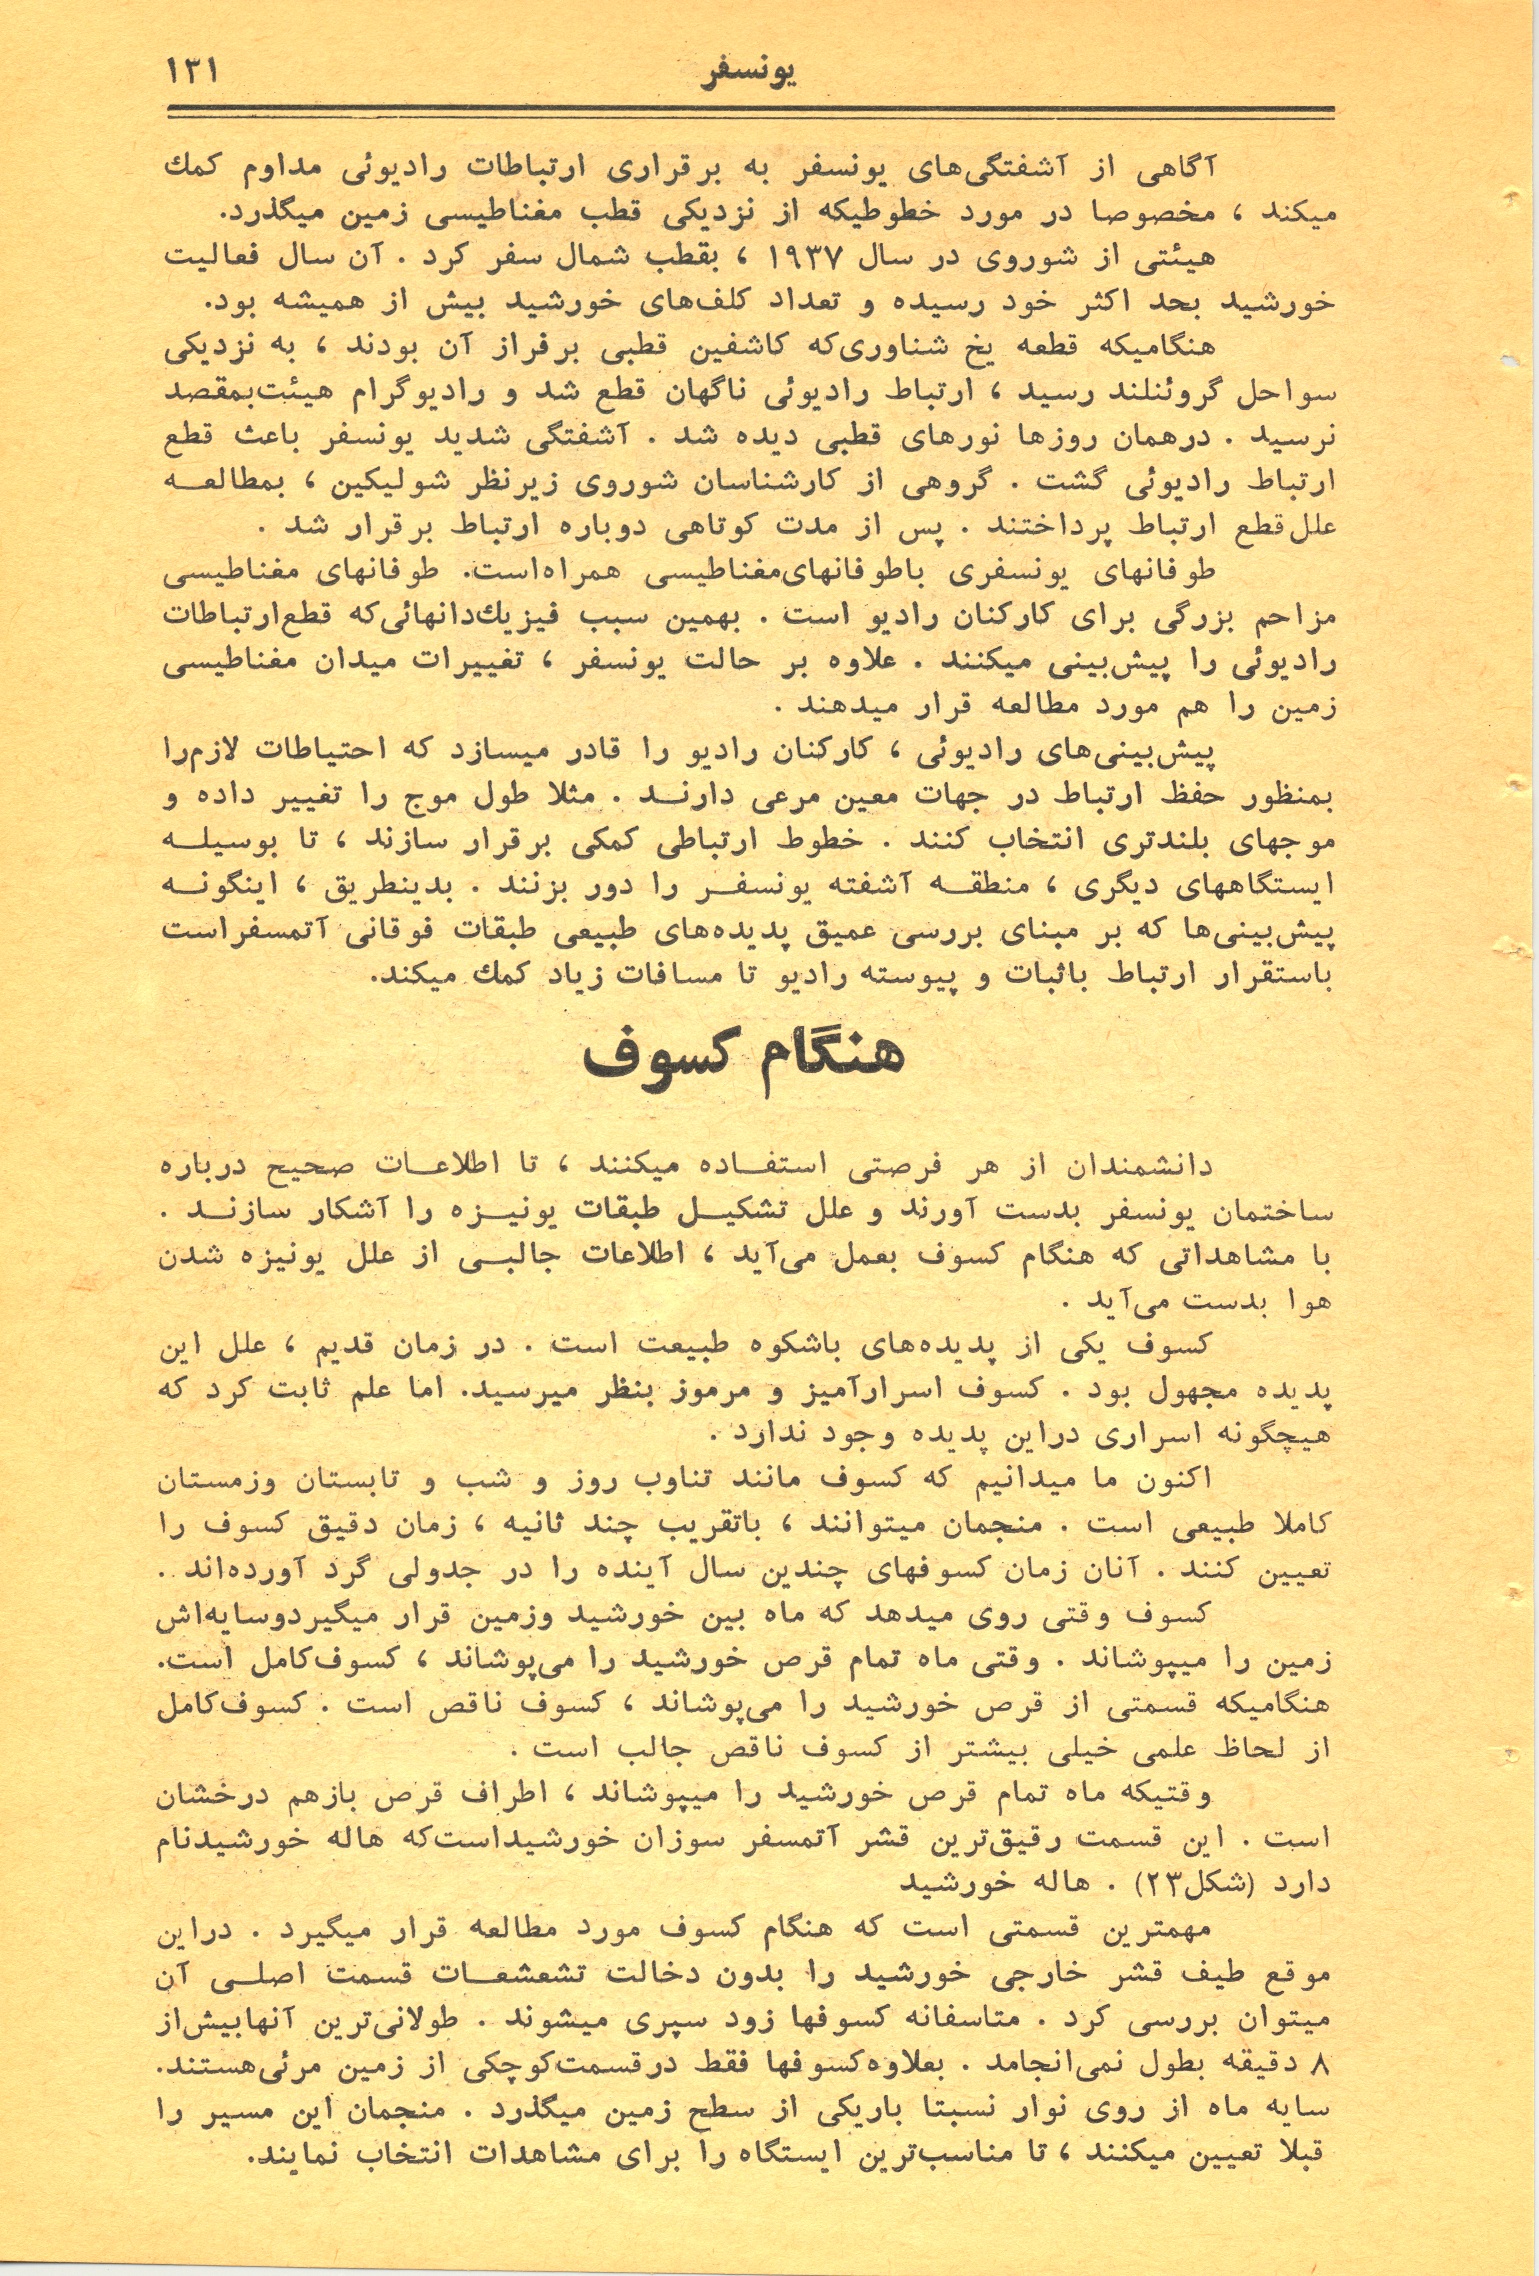 یونسفر
۱۳۱
آگاهی از آشفتگی‌های یونسفر به برقراری ارتباطات رادیوئی مداوم کمك
میکند ، مخصوصا در مورد خطوطیکه از نزدیکی قطب مغناطیسی زمین میگذرد.
هیئتی از شوروی در سال ۱۹۳۷ ، بقطب شمال سفر کرد . آن سال فعالیت
خورشید بحد اکثر خود رسیده و تعداد کلف‌های خورشید بیش از همیشه بود.
هنگامیکه قطعه یخ شناوری‌که کاشفین قطبی برفراز آن بودند ، به نزدیکی
سواحل گروئنلند رسید ، ارتباط رادیوئی ناگهان قطع شد و رادیوگرام هیئت‌بمقصد
نرسید . درهمان روزها نورهای قطبی دیده شد . آشفتگی شدید یونسفر باعث قطع
ارتباط رادیوئی گشت . گروهی از کارشناسان شوروی زیرنظر شولیکین ، بمطالعـه
علل‌قطع ارتباط پرداختند . پس از مدت کوتاهی دوباره ارتباط برقرار شد .
طوفانهای یونسفری باطوفانهای‌مغناطیسی همراه‌است. طوفانهای مغناطیسی
مزاحم بزرگی برای کارکنان رادیو است . بهمین سبب فیزیك‌دانهائی‌که قطع‌ارتباطات
رادیوئی را پیش‌بینی میکنند . علاوه بر حالت یونسفر ، تغییرات میدان مغناطیسی
زمین را هم مورد مطالعه قرار میدهند .
پیش‌بینی‌های رادیوئی ، کارکنان رادیو را قادر میسازد که احتیاطات لازم‌را
بمنظور حفظ ارتباط در جهات معین مرعی دارنـد . مثلا طول موج را تغییر داده و
موجهای بلندتری انتخاب کنند . خطوط ارتباطی کمکی برقرار سازند ، تا بوسیلـه
ایستگاههای دیگری ، منطقـه آشفته یونسفـر را دور بزنند . بدینطریق ، اینگونـه
پیش‌بینی‌ها که بر مبنای بررسی عمیق پدیده‌های طبیعی طبقات فوقانی آتمسفراست
باستقرار ارتباط باثبات و پیوسته رادیو تا مسافات زیاد کمك میکند.
هنگام کسوف
دانشمندان از هر فرصتی استفـاده میکنند ، تا اطلاعـات صحیح درباره
ساختمان یونسفر بدست آورند و علل تشکیـل طبقات یونیـزه را آشکار سازنـد .
با مشاهداتی که هنگام کسوف بعمل می‌آید ، اطلاعات جالبـی از علل یونیزه شدن
هوا بدست می‌آید .
کسوف یکی از پدیده‌های باشکوه طبیعت است . در زمان قدیم ، علل این
پدیده مجهول بود . کسوف اسرارآمیز و مرموز بنظر میرسید. اما علم ثابت کرد که
هیچگونه اسراری دراین پدیده وجود ندارد .
اکنون ما میدانیم که کسوف مانند تناوب روز و شب و تابستان وزمستان
کاملا طبیعی است . منجمان میتوانند ، باتقریب چند ثانیه ، زمان دقیق کسوف را
تعیین کنند . آنان زمان کسوفهای چندین سال آینده را در جدولی گرد آورده‌اند .
کسوف وقتی روی میدهد که ماه بین خورشید وزمین قرار میگیردوسایه‌اش
زمین را میپوشاند . وقتی ماه تمام قرص خورشید را می‌پوشاند ، کسوف‌کامل است.
هنگامیکه قسمتی از قرص خورشید را می‌پوشاند ، کسوف ناقص است . کسوف‌کامل
از لحاظ علمی خیلی بیشتر از کسوف ناقص جالب است .
وقتیکه ماه تمام قرص خورشید را میپوشاند ، اطراف قرص بازهم درخشان
است . این قسمت رقیق‌ترین قشر آتمسفر سوزان خورشیداست‌که هاله خورشیدنام
دارد (شکل۲۳) . هاله خورشید
مهمترین قسمتی است که هنگام کسوف مورد مطالعه قرار میگیرد . دراین
موقع طیف قشر خارجی خورشید را بدون دخالت تشعشعـات قسمت اصلـی آن
میتوان بررسی کرد . متاسفانه کسوفها زود سپری میشوند . طولانی‌ترین آنهابیش‌از
۸ دقیقه بطول نمی‌انجامد . بعلاوه‌کسوفها فقط درقسمت‌کوچکی از زمین مرئی‌هستند.
سایه ماه از روی نوار نسبتا باریکی از سطح زمین میگذرد . منجمان این مسیر را
قبلا تعیین میکنند ، تا مناسب‌ترین ایستگاه را برای مشاهدات انتخاب نمایند.